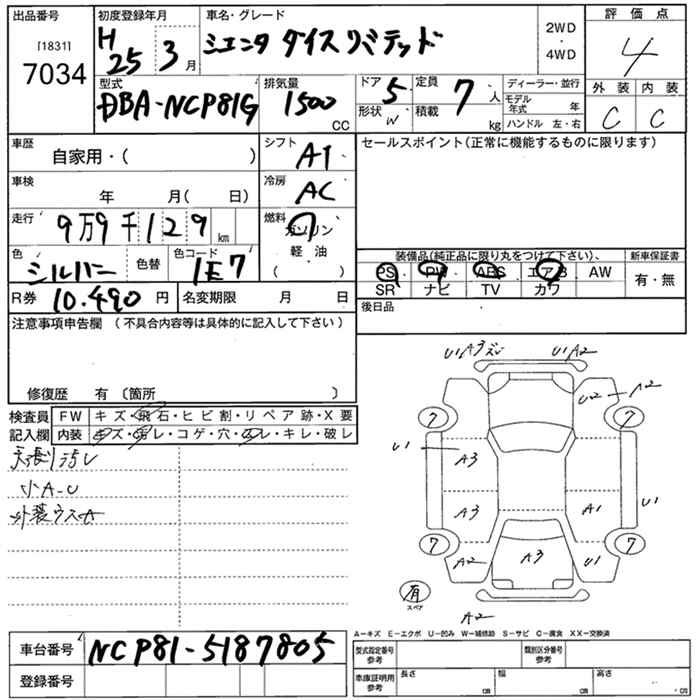 出品番号 [1831] 7034
初度登録年月 H25 3月
車名・グレード シエンタ ダイス リミテッド
2WD ・ 4WD
評価点 4
外装 C 内装 C
型式 DBA-NCP81G
排気量 1500 CC
ドア 5 形状 W
定員 7人 積載 kg
ディーラー・並行
モデル年式 年
ハンドル 左・右
車歴 自家用・( )
シフト AT
セールスポイント(正常に機能するものに限ります)
車検 年 月( 日)
冷房 AC
走行 9万9千129km
燃料 ガソリン 軽・油 ( )
色 シルバー 色替 色コード 1E7
装備品(純正品に限り丸をつけて下さい)、
PS PW ABS エアB AW
SR ナビ TV カワ
新車保証書 有・無
R券 10.490円 名変期限 月 日
後日品
注意事項申告欄 (不具合内容等は具体的に記入して下さい)
修復歴 有 〔箇所 〕
検査員記入欄
FW キズ・飛石・ヒビ割・リペア跡・X要
内装 キズ・汚レ・コゲ・穴・スレ・キレ・破レ
天張り汚レ
小A.U
外装ウスA
U1A3ズレ U1A2
U2 A2
7 7
U1 A3
A3 A1 U1
7 7
A2 A3 U1
有 スペア
A2
A-キズ E-エクボ U-凹み W-補修跡 S-サビ C-腐食 XX-交換済
車台番号 NCP81-5187805
登録番号
型式指定番号 参考 類別区分番号 参考
車庫証明用 参考 長さ cm 幅 cm 高さ cm